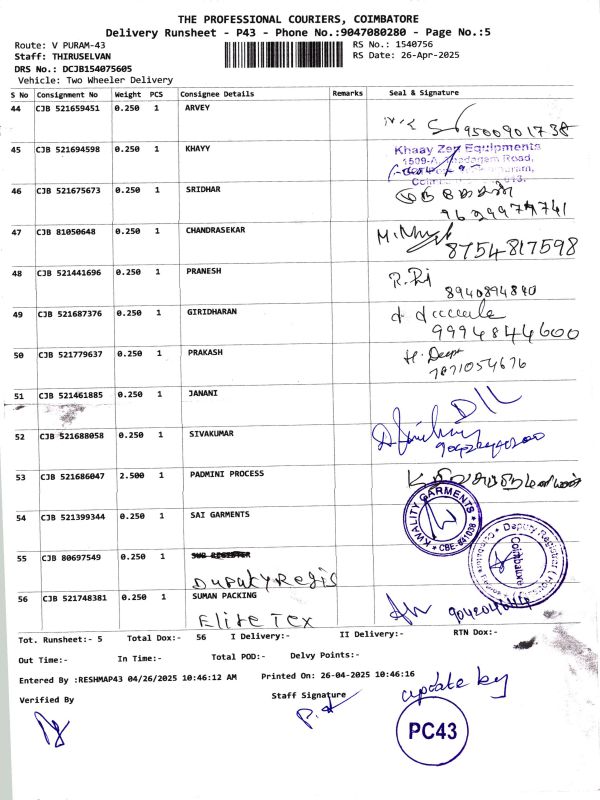 THE PROFESSIONAL COURIERS, COIMBATORE
Delivery Runsheet - P43 - Phone No.:9047080280 - Page No.:5
Route: V PURAM-43
RS No.: 1540756
Staff: THIRUSELVAN
RS Date: 26-Apr-2025
DRS No.: DCJB154075605
Vehicle: Two Wheeler Delivery
S No Consignment No Weight PCS Consignee Details Remarks Seal & Signature
44 CJB 521659451 0.250 1 ARVEY
9500901738
45 CJB 521694598 0.250 1 KHAYY
Khaay Zen Equipments
1509-A, Thadagam Road,
46 CJB 521675673 0.250 1 SRIDHAR
47 CJB 81050648 0.250 1 CHANDRASEKAR
8754817598
48 CJB 521441696 0.250 1 PRANESH
8940894840
49 CJB 521687376 0.250 1 GIRIDHARAN
9994844600
50 CJB 521779637 0.250 1 PRAKASH
7871054676
51 CJB 521461885 0.250 1 JANANI
52 CJB 521688058 0.250 1 SIVAKUMAR
53 CJB 521686047 2.500 1 PADMINI PROCESS
54 CJB 521399344 0.250 1 SAI GARMENTS
KWALITY GARMENTS
CBE-641038
55 CJB 80697549 0.250 1 SUB REGISTER
Duputy Regis
Deputy Registrar
Coimbatore
56 CJB 521748381 0.250 1 SUMAN PACKING
Elite Tex
Tot. Runsheet:- 5 Total Dox:- 56 I Delivery:- II Delivery:- RTN Dox:-
Out Time:- In Time:- Total POD:- Delvy Points:-
Entered By :RESHMAP43 04/26/2025 10:46:12 AM Printed On: 26-04-2025 10:46:16
Verified By Staff Signature
update by
PC43